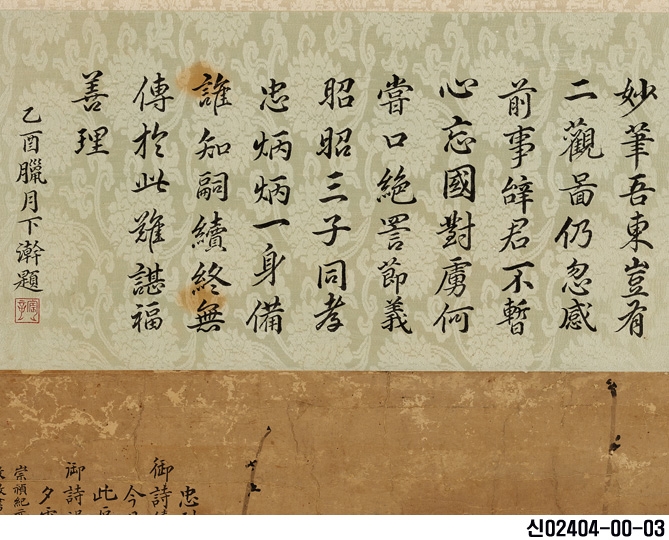 妙筆吾東豈有
二觀啚仍忽感
前事辭君不暫
心忘國對虜何
嘗口絶詈節義
昭昭三子同孝
忠炳炳一身備
誰知嗣續終無
傳於此難諶福
善理
乙酉臘月下澣題
御詩
今
此
御詩
夕
신02404-00-03